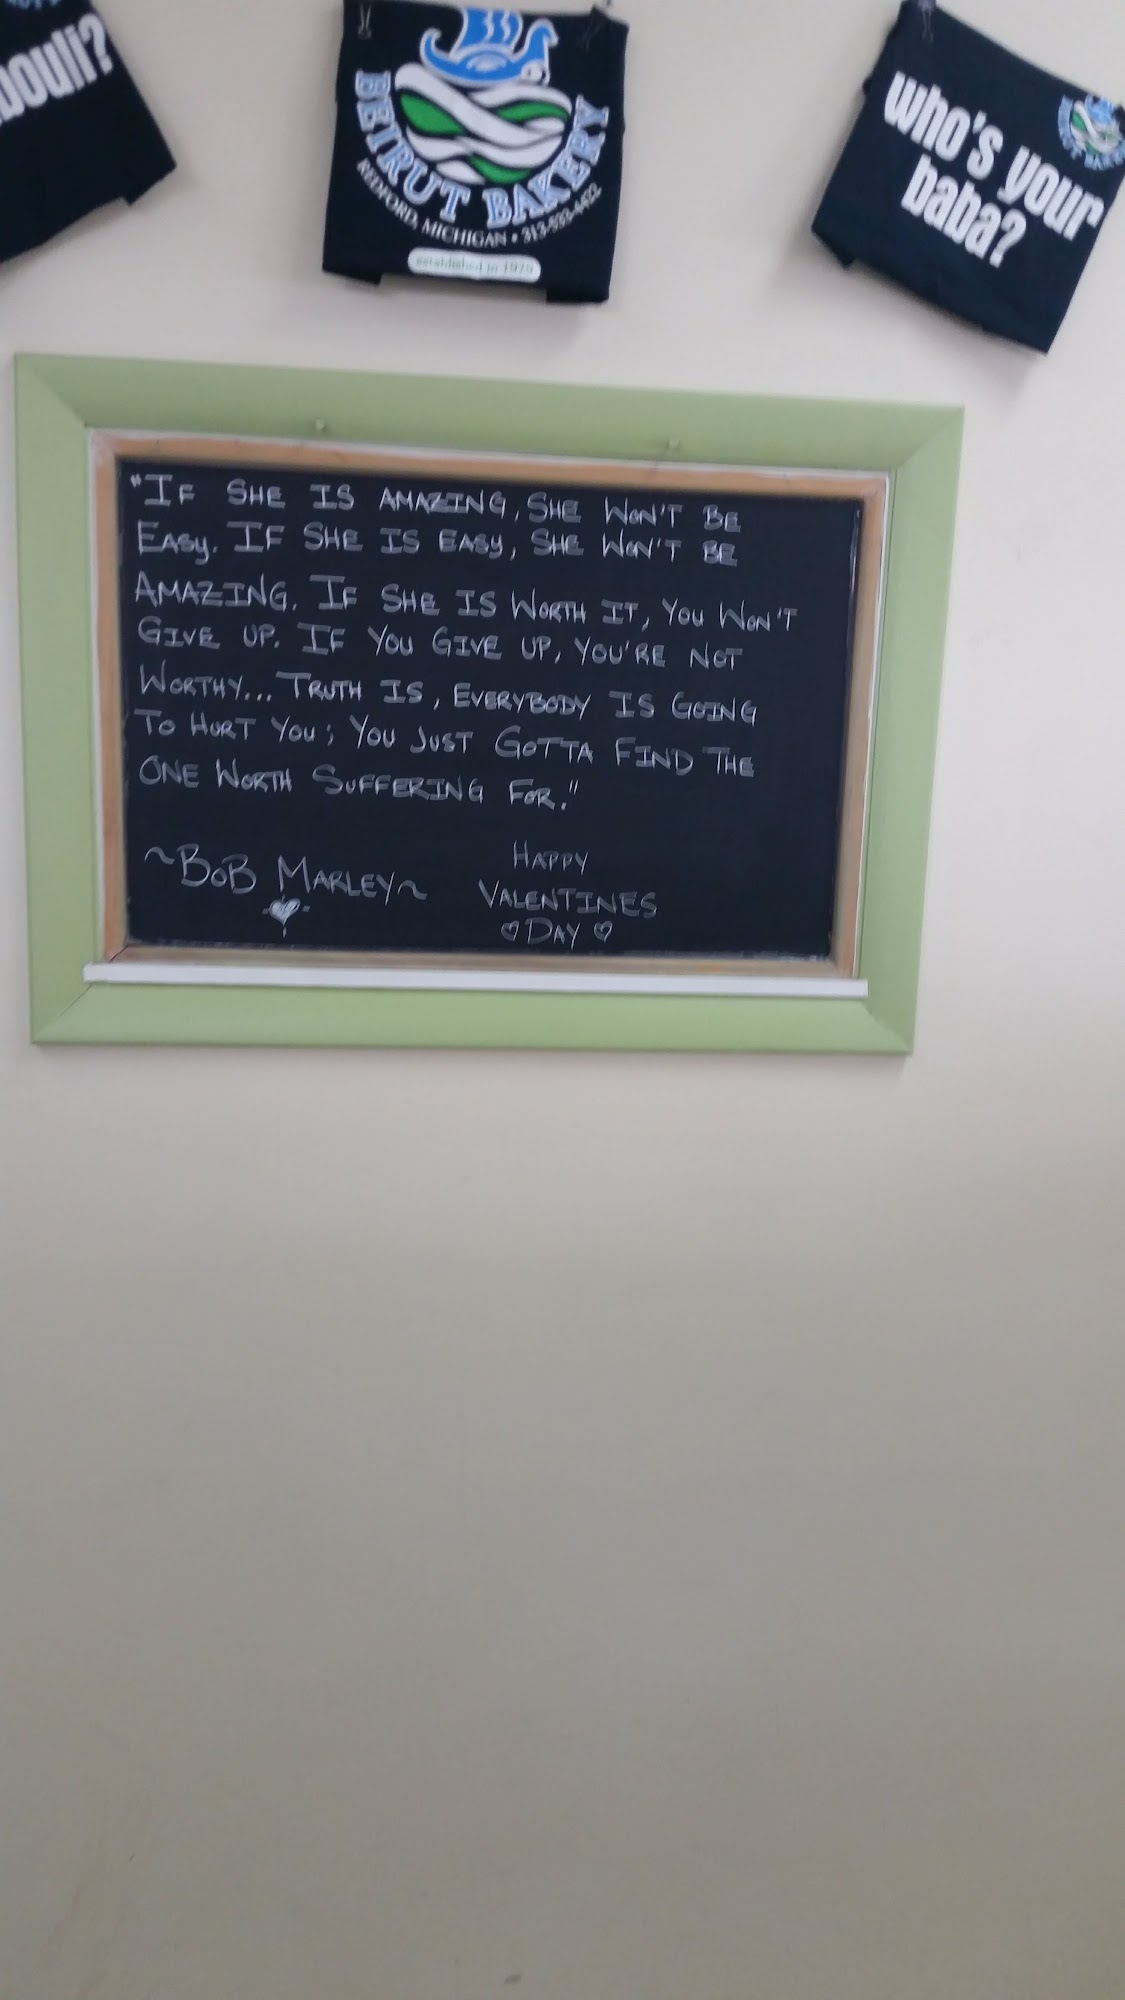 bouli?
BEIRUT BAKERY
REDFORD, MICHIGAN • 313-533-4422
established in 1979
who's your
baba?
"IF SHE IS AMAZING, SHE WON'T BE
EASY. IF SHE IS EASY, SHE WON'T BE
AMAZING. IF SHE IS WORTH IT, YOU WON'T
GIVE UP. IF YOU GIVE UP, YOU'RE NOT
WORTHY... TRUTH IS, EVERYBODY IS GOING
TO HURT YOU; YOU JUST GOTTA FIND THE
ONE WORTH SUFFERING FOR."
~BOB MARLEY~
HAPPY
VALENTINES
DAY